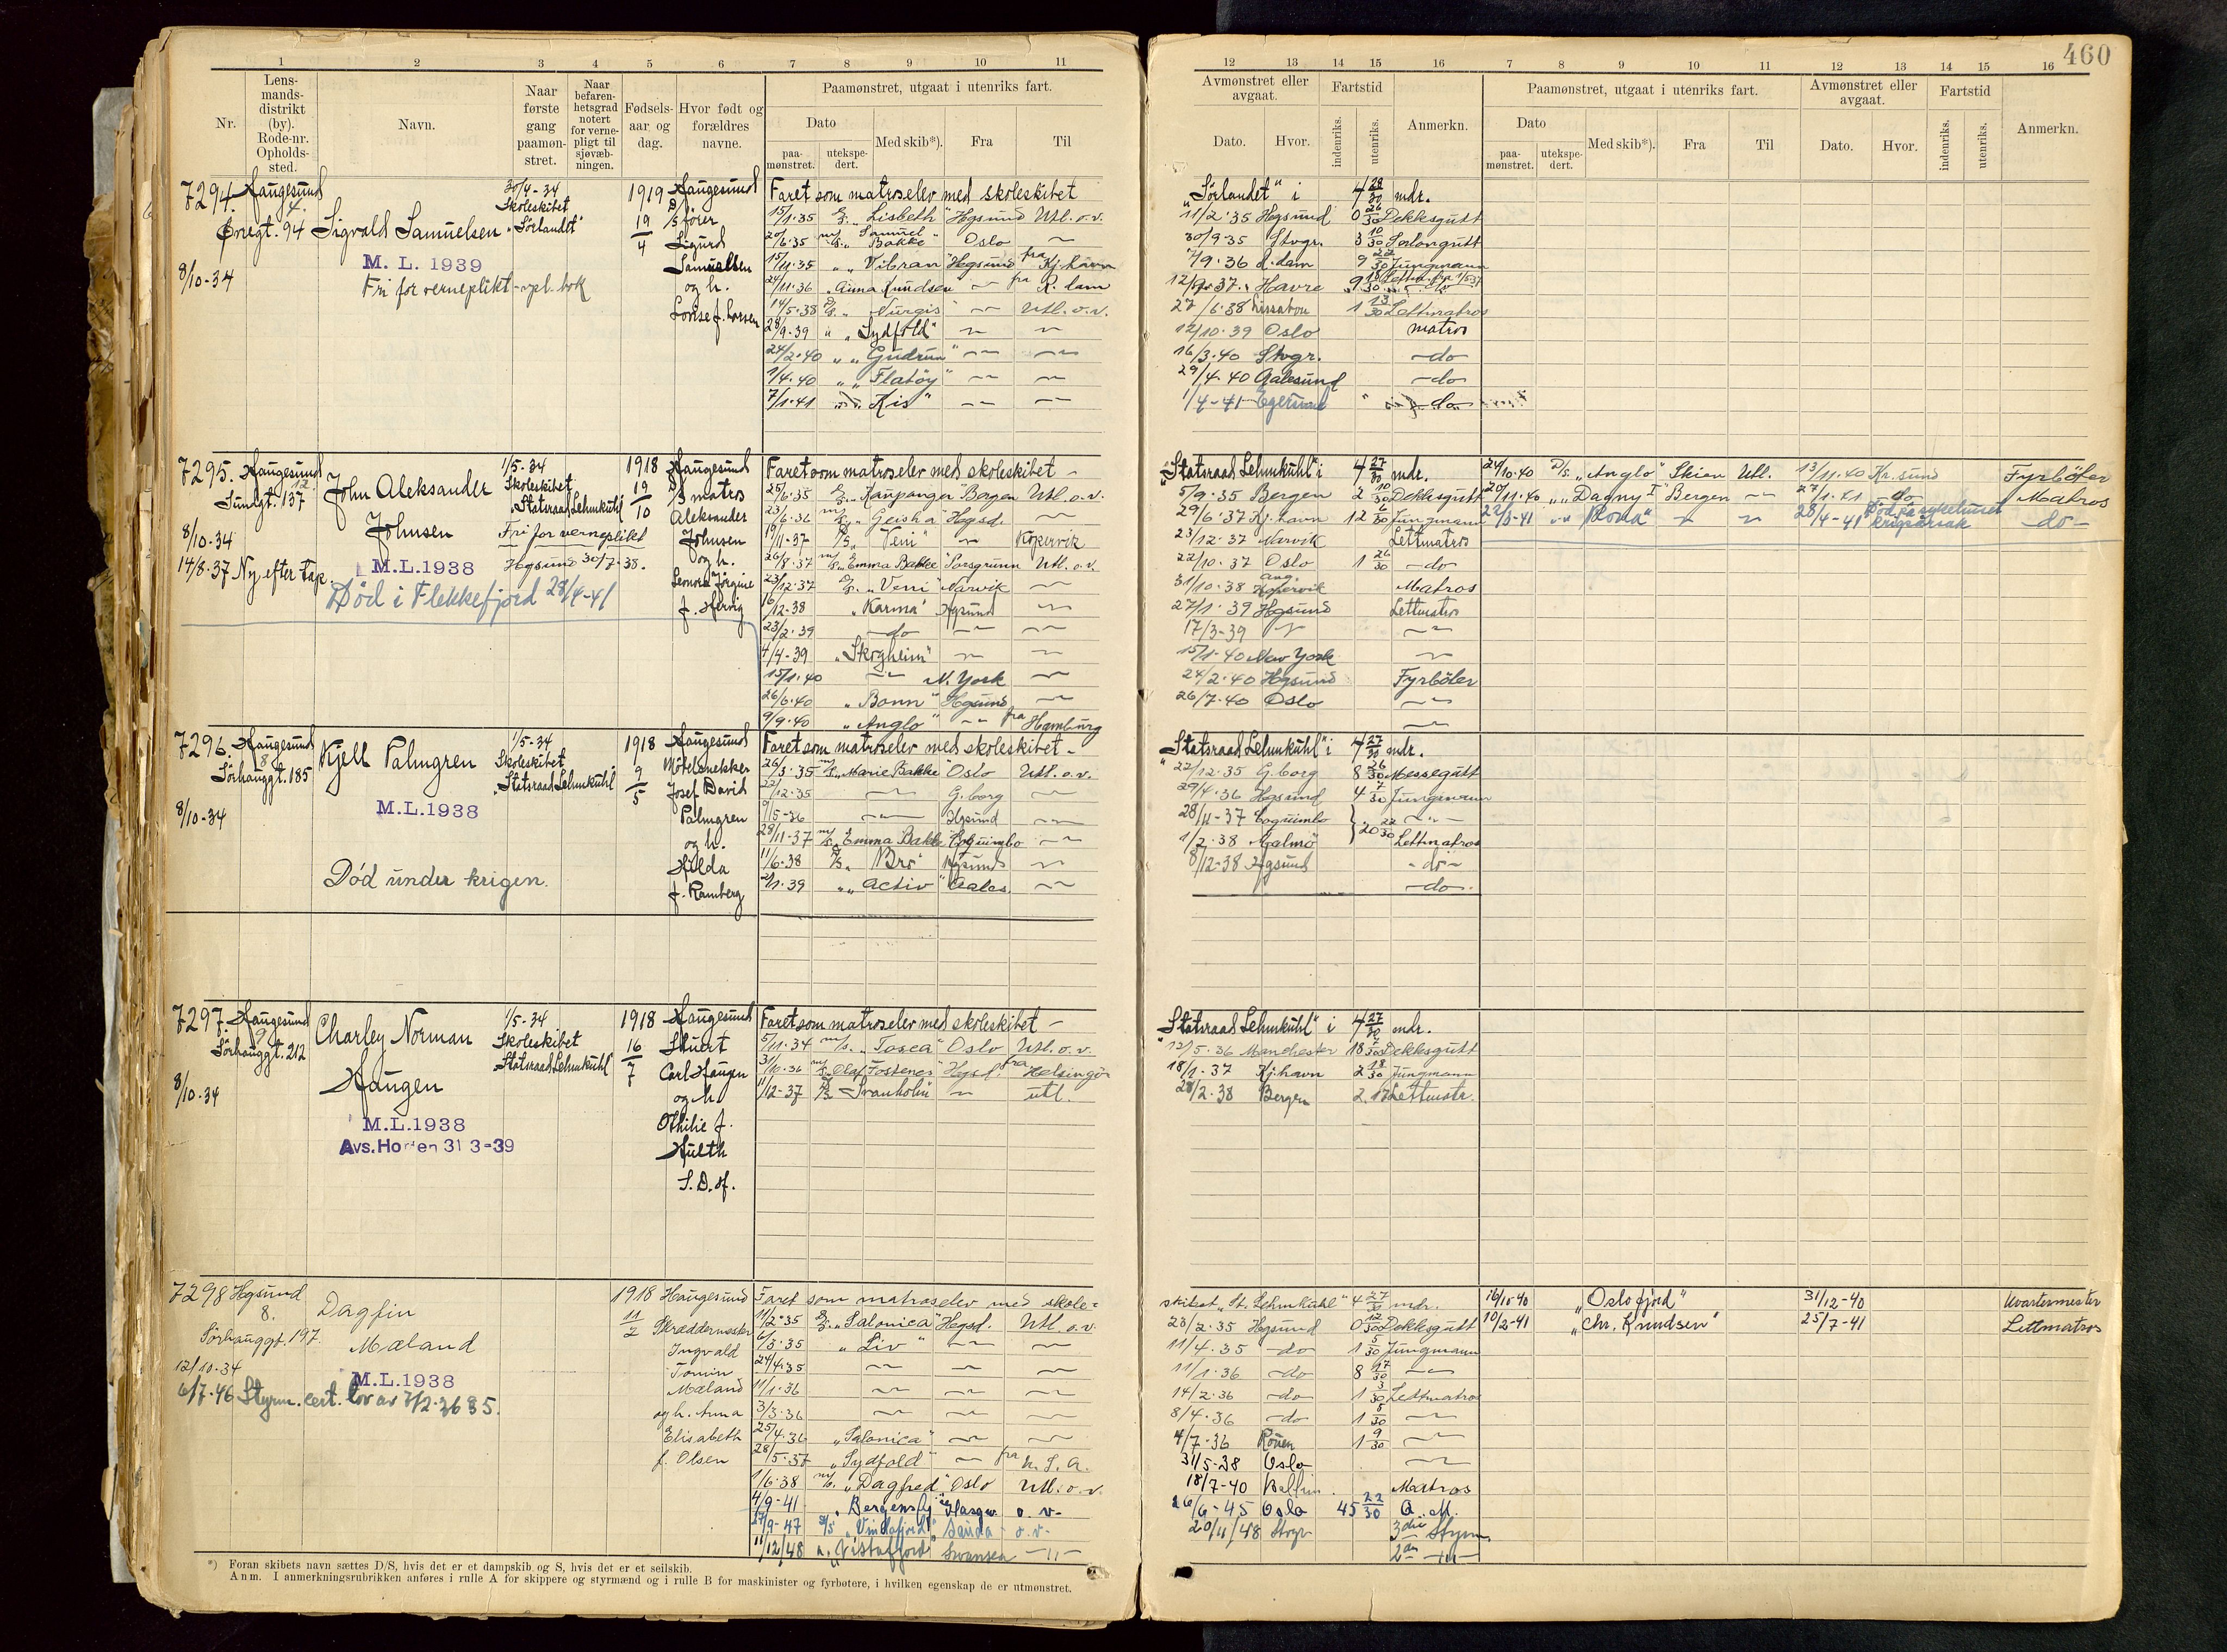 460
1 2 3 4 5 6 7 8 9 10 11
Nr.
Lens-
mands-
distrikt
(by).
Rode-nr.
Opholds-
sted.
Navn.
Naar
første
gang
paamøn-
stret.
Naar
befaren-
hetsgrad
notert
for verne-
pligt til
sjøvæb-
ningen.
Fødsels-
aar og
dag.
Hvor født og
forældres
navne.
Paamønstret, utgaat i utenriks fart.
Dato
paa-
mønstret.
utekspe-
dert.
Med skib*).
Fra
Til
12 13 14 15 16 7 8 9 10 11 12 13 14 15 16
Avmønstret eller
avgaat.
Fartstid
Dato.
Hvor.
indenriks.
utenriks.
Anmerkn.
Paamønstret, utgaat i utenriks fart.
Dato
paa-
mønstret.
utekspe-
dert.
Med skib*).
Fra
Til
Avmønstret eller
avgaat.
Fartstid
Dato.
Hvor.
indenriks.
utenriks.
Anmerkn.
7294. Haugesund
4.
Øvregt. 94
8/10-34
Sigvald Samuelsen
M. L. 1939
Fri for verneplikt - vpl. bok
30/4-34
Skoleskibet
"Sörlandet"
1919
19/4
Haugesund
Sigurd
Samuelsen
og h.
Faret som matroselev med skoleskibet
15/1-35 "Lisbeth" Hgsund Utl. o. v.
20/6-35 "Samuel
Bakke" Oslo
15/11-35 "Vibran" Hgsund fra Kj.havn
24/11-36 "Anna Knudsen" fra R. dam
14/5-38 "Nurgis" Utl. o. v.
28/9-39 "Sydfold"
24/2-40 "Gudrun"
9/4-40 "Flatöy"
7/1-41 "Kis"
"Sörlandet" i 4 28/30 mdr.
11/2-35 Hgsund 0 26/30 Dekksgutt
30/9-35 Stvgr. 3 10/30 Salongutt
7/9-36 R. dam 9 22/30 Jungmann
12/9-37 Havre 9
27/6-38 Lissabon 1 13/30 Lettmatros
12/10-39 Oslo matros
16/3-40 Stvgr. -do-
29/4-40 Aalesund -do-
1/4-41 Egersund -do-
7295. Haugesund
12.
Sundgt. 137
8/10-34
14/8-37 Ny efter tap.
John Aleksander
Johnsen
M. L. 1938
Död i Flekkefjord 28/4-41
1/5-34
Skoleskibet
"Statsraad Lehmkuhl"
Fri for verneplikt
Hgsund 30/7-38.
1918
19/10
Haugesund
matros
Aleksander
Johnsen
og h.
Leonora Jörgine
f. Hervig
Faret som matroselev med skoleskibet -
25/6-35 "Kaupanger" Bergen Utl. o. v.
23/6-36 "Geisha" Hgsd.
19/11-37 "Veni" Kopervik
26/8-37 "Emma Bakke" Porsgrunn Utl. o. v.
23/12-37 "Veni" Narvik
16/12-38 "Karma" Hgsund
23/2-39 -do-
4/4-39 "Skogheim"
15/1-40 N. York
26/6-40 "Bonn" Hgsund
9/9-40 "Anglo" fra Hamburg
"Statsraad Lehmkuhl" i 4 27/30 mdr.
5/9-35 Bergen 2 10/30 Dekksgutt
29/6-37 Kj. havn 12 6/30 Jungmann
23/12-37 Narvik Lettmatros
22/10-37 Oslo 1 26/30 -do-
31/10-38 Kopervik Matros
27/1-39 Hgsund Lettmatros
17/3-39
15/1-40 New York
24/2-40 Hgsund Fyrböter
26/7-40 Oslo
24/10-40 D/S. "Anglo" Skien Utl. 13/11-40 Kr. sund Fyrböter
20/11-40 "Dagny I" Bergen 27/1-41 -do- Matros
22/3-41 "Roma" 28/4-41 Död på sykehuset
krigsårsak -do-
7296. Haugesund
8
Sörhauggt. 185
8/10-34
Kjell Palmgren
M.L.1938
Död under krigen.
1/5-34
Skoleskibet
"Statsraad Lehmkuhl"
1918
9/5
Haugesund
Möbelsnekker
Josef David
Palmgren
og h.
Hilda
f. Ramberg
Faret som matroselev med skoleskibet -
26/3-35 "Marie Bakke" Oslo Utl. o. v.
22/12-35 G. borg
9/5-36 Hgsund
28/11-37 "Emma Bakke" Coquimbo
11/6-38 "Bro" Hgsund
2/1-39 "Activ" Aales.
"Statsraad Lehmkuhl" i 4 27/30 mdr.
22/12-35 G. borg 8 26/30 Messegutt
29/4-36 Hgsund 4 7/30 Jungmann
28/11-37 Coquimbo
1/2-38 Malmö 20 22/30 Lettmatros
8/12-38 Hgsund -do-
-do-
7297. Haugesund
9
Sörhauggt. 212
8/10-34
Charley Norman
Haugen
M.L.1938
Avs. Horten 31 3-39
1/5-34
Skoleskibet
"Statsraad Lehmkuhl"
1918
16/7
Haugesund
Stuert
Carl Haugen
og h.
Othilie f.
Hulth
S. D. A.
Faret som matroselev med skoleskibet -
5/11-34 m/s. "Tosca" Oslo Utl. o. v.
31/10-36 "Olaf Fostenes" Hgsd. fra Helsingör
11/12-37 "Svanholm" utl.
"Statsraad Lehmkuhl" i 4 27/30 mdr.
12/5-36 Manchester 18 Dekksgutt
18/1-37 Kj. havn 2 18/30 Jungmann
28/2-38 Bergen 2. 17 Lettmatr.
7298 Hgsund
8.
Sörhauggt. 197
12/10-34
6/7-46 Styrm. cert. lov av 7/2-36 § 5.
Dagfin
Mæland
M.L.1938
1918
11/2
Haugesund
Skræddermester
Ingvald
Mæland
og h. Anna
Elisabeth
f. Olsen
Faret som matroselev med skole=
11/2-35 "Salonica" Hgsd. Utl. o. v.
6/3-35 "Liv"
24/4-35
11/1-36
3/3-36
25/4-36 "Salonica"
28/5-37 "Sydfold" fra U. S. A.
1/6-38 m/s. "Dagfred" Oslo Utl. o. v.
4/9-41 "Bergensfj." Glasgw. o. v.
27/9-47 "Vindafjord" Sauda o. v.
11/12/48 "Vistafjord" Swansea -"-
skibet "St. Lehmkuhl" 4 27/30 mdr.
23/2-35 Hgsund 0 12/30 Dekksgutt
11/4-35 -do- 1 5/30 Jungmann
11/1-36 -do- 8 17/30
14/2-36 -do- 1 3/30 Lettmatros
8/4-36 -do- 1 5/30
4/7-36 Rouen 1 9/30
31/5-38 Oslo
18/7-40 Matros
26/6-45 Oslo 45 22/30 Q. M.
20/11/48 Stvgr 3die Styrm.
2den -"-
16/11-40 "Oslofjord" 31/12-40 Kvartermester
10/2-41 "Chr. Knudsen" 25/7-41 Lettmatros
*) Foran skibets navn sættes D/S, hvis det er et dampskib og S, hvis det er et seilskib.
Anm. I anmerkningsrubrikken anføres i rulle A for skippere og styrmænd og i rulle B for maskinister og fyrbøtere, i hvilken egenskap de er utmønstret.